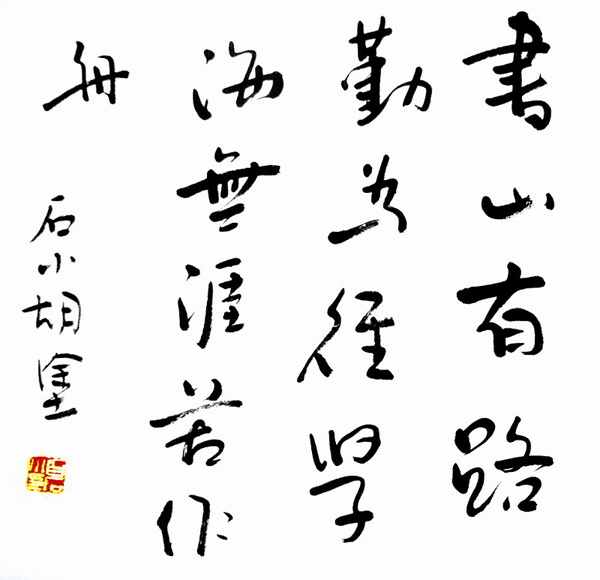 書山有路
勤为徑學
海無涯苦作
舟
石小胡塗